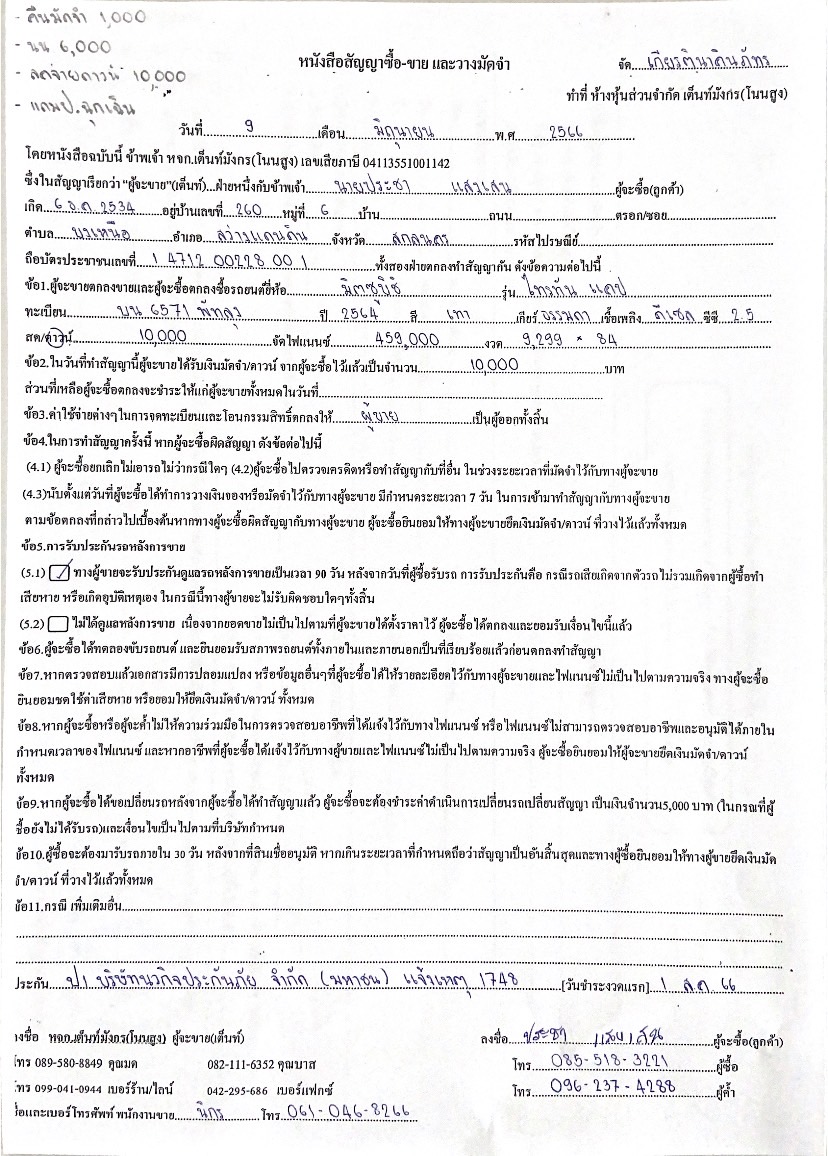 - คืนมัดจำ 1,000
- นน 6,000
- ลดจ่ายดาวน์ 10,000
- แถมป.ฉุกเฉิน
หนังสือสัญญาซื้อ-ขาย และวางมัดจำ
จัด เกียรตินาคินภัทร
ทำที่ ห้างหุ้นส่วนจำกัด เต็นท์มังกร(โนนสูง)
วันที่ 9 เดือน มิถุนายน พ.ศ 2566
โดยหนังสือฉบับนี้ ข้าพเจ้า หจก.เต็นท์มังกร(โนนสูง) เลขเสียภาษี 04113551001142
ซึ่งในสัญญาเรียกว่า "ผู้จะขาย"(เต็นท์)...ฝ่ายหนึ่งกับข้าพเจ้า นายประชา แสงเสน ผู้จะซื้อ(ลูกค้า)
เกิด 6 ธ.ค. 2534 อยู่บ้านเลขที่ 260 หมู่ที่ 6 บ้าน ถนน ตรอก/ซอย
ตำบล บงเหนือ อำเภอ สว่างแดนดิน จังหวัด สกลนคร รหัสไปรษณีย์
ถือบัตรประชาชนเลขที่ 1 4712 00228 00 1 ทั้งสองฝ่ายตกลงทำสัญญากัน ดังข้อความต่อไปนี้
ข้อ1.ผู้จะขายตกลงขายและผู้จะซื้อตกลงซื้อรถยนต์ยี่ห้อ มิตซูบิชิ รุ่น ไทรทัน แคป
ทะเบียน บน 6571 พัทลุง ปี 2564 สี เทา เกียร์ ธรรมดา เชื้อเพลิง ดีเซล ซีซี 2.5
สด/ดาวน์ 10,000 จัดไฟแนนซ์ 459,000 งวด 9,299 × 84
ข้อ2.ในวันที่ทำสัญญานี้ผู้จะขายได้รับเงินมัดจำ/ดาวน์ จากผู้จะซื้อไว้แล้วเป็นจำนวน 10,000 บาท
ส่วนที่เหลือผู้จะซื้อตกลงจะชำระให้แก่ผู้จะขายทั้งหมดในวันที่
ข้อ3.ค่าใช้จ่ายต่างๆในการจดทะเบียนและโอนกรรมสิทธิ์ตกลงให้ ผู้ขาย เป็นผู้ออกทั้งสิ้น
ข้อ4.ในการทำสัญญาครั้งนี้ หากผู้จะซื้อผิดสัญญา ดังข้อต่อไปนี้
(4.1) ผู้จะซื้อยกเลิกไม่เอารถไม่ว่ากรณีใดๆ (4.2)ผู้จะซื้อไปตรวจเครดิตหรือทำสัญญากับที่อื่น ในช่วงระยะเวลาที่มัดจำไว้กับทางผู้จะขาย
(4.3)นับตั้งแต่วันที่ผู้จะซื้อได้ทำการวางเงินจองหรือมัดจำไว้กับทางผู้จะขาย มีกำหนดระยะเวลา 7 วัน ในการเข้ามาทำสัญญากับทางผู้จะขาย
ตามข้อตกลงที่กล่าวไปเบื้องต้นหากทางผู้จะซื้อผิดสัญญากับทางผู้จะขาย ผู้จะซื้อยินยอมให้ทางผู้จะขายยึดเงินมัดจำ/ดาวน์ ที่วางไว้แล้วทั้งหมด
ข้อ5.การรับประกันรถหลังการขาย
(5.1) ทางผู้ขายจะรับประกันดูแลรถหลังการขายเป็นเวลา 90 วัน หลังจากวันที่ผู้ซื้อรับรถ การรับประกันคือ กรณีรถเสียเกิดจากตัวรถไม่รวมเกิดจากผู้ซื้อทำ
เสียหาย หรือเกิดอุบัติเหตุเอง ในกรณีนี้ทางผู้ขายจะไม่รับผิดชอบใดๆทั้งสิ้น
(5.2) ไม่ได้ดูแลหลังการขาย เนื่องจากยอดขายไม่เป็นไปตามที่ผู้จะขายได้ตั้งราคาไว้ ผู้จะซื้อได้ตกลงและยอมรับเงื่อนไขนี้แล้ว
ข้อ6.ผู้จะซื้อได้ทดลองขับรถยนต์ และยินยอมรับสภาพรถยนต์ทั้งภายในและภายนอกเป็นที่เรียบร้อยแล้วก่อนตกลงทำสัญญา
ข้อ7.หากตรวจสอบแล้วเอกสารมีการปลอมแปลง หรือข้อมูลอื่นๆที่ผู้จะซื้อได้ให้รายละเอียดไว้กับทางผู้จะขายและไฟแนนซ์ไม่เป็นไปตามความจริง ทางผู้จะซื้อ
ยินยอมชดใช้ค่าเสียหาย หรือยอมให้ยึดเงินมัดจำ/ดาวน์ ทั้งหมด
ข้อ8.หากผู้จะซื้อหรือผู้จะค้ำไม่ให้ความร่วมมือในการตรวจสอบอาชีพที่ได้แจ้งไว้กับทางไฟแนนซ์ หรือไฟแนนซ์ไม่สามารถตรวจสอบอาชีพและอนุมัติได้ภายใน
กำหนดเวลาของไฟแนนซ์ และหากอาชีพที่ผู้จะซื้อได้แจ้งไว้กับทางผู้ขายและไฟแนนซ์ไม่เป็นไปตามความจริง ผู้จะซื้อยินยอมให้ผู้จะขายยึดเงินมัดจำ/ดาวน์
ทั้งหมด
ข้อ9.หากผู้จะซื้อได้ขอเปลี่ยนรถหลังจากผู้จะซื้อได้ทำสัญญาแล้ว ผู้จะซื้อจะต้องชำระค่าดำเนินการเปลี่ยนรถเปลี่ยนสัญญา เป็นเงินจำนวน5,000 บาท (ในกรณีที่ผู้
ซื้อยังไม่ได้รับรถ)และเงื่อนไขเป็นไปตามที่บริษัทกำหนด
ข้อ10.ผู้ซื้อจะต้องมารับรถภายใน 30 วัน หลังจากที่สินเชื่ออนุมัติ หากเกินระยะเวลาที่กำหนดถือว่าสัญญาเป็นอันสิ้นสุดและทางผู้ซื้อยินยอมให้ทางผู้ขายยึดเงินมัด
จำ/ดาวน์ ที่วางไว้แล้วทั้งหมด
ข้อ11.กรณี เพิ่มเติมอื่น
ประกัน ป1 บริษัทนวกิจประกันภัย จำกัด (มหาชน) แจ้งเหตุ 1748 [วันชำระงวดแรก] 1 ส.ค 66
งชื่อ หจก.เต็นท์มังกร(โนนสูง) ผู้จะขาย(เต็นท์) ลงชื่อ ประชา แสงเสน ผู้จะซื้อ(ลูกค้า)
โทร 089-580-8849 คุณมด 082-111-6352 คุณบาส โทร 085-518-3221 ผู้ซื้อ
โทร 099-041-0944 เบอร์ร้าน/ไลน์ 042-295-686 เบอร์แฟกซ์ โทร 096-237-4288 ผู้ค้ำ
ชื่อและเบอร์โทรศัพท์ พนักงานขาย นิกร โทร 061-046-8266